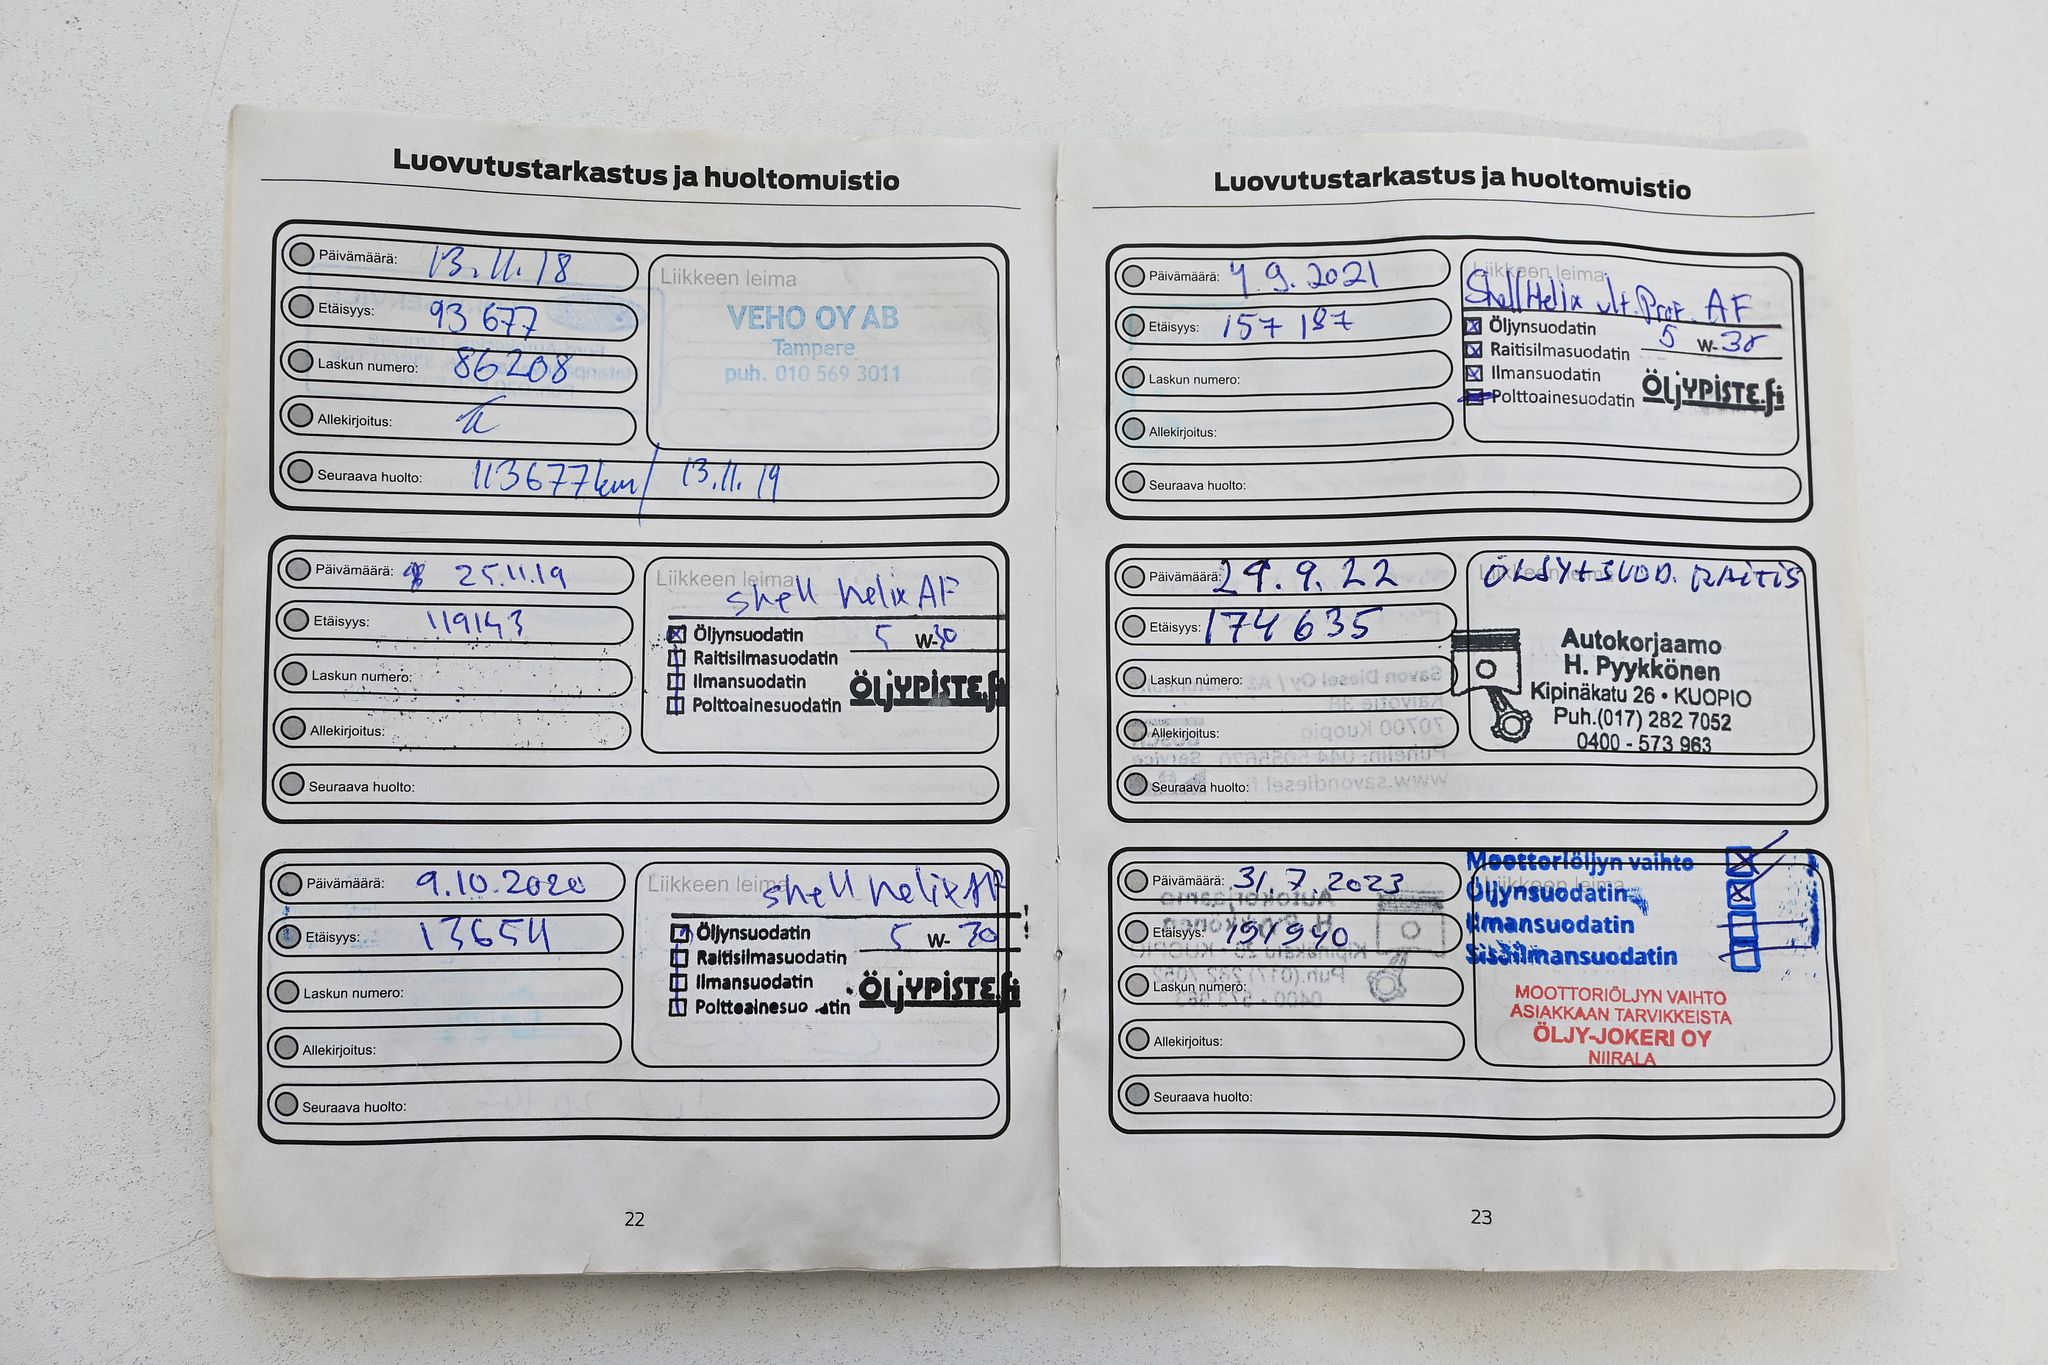 Luovutustarkastus ja huoltomuistio
Päivämäärä: 13.11.18
Etäisyys: 93 677
Laskun numero: 86208
Allekirjoitus:
Seuraava huolto: 113677km/ 13.11.19
Liikkeen leima
VEHO OY AB
Tampere
puh. 010 569 3011
Päivämäärä: 25.11.19
Etäisyys: 119143
Laskun numero:
Allekirjoitus:
Seuraava huolto:
Liikkeen leima
shell helix AF
Öljynsuodatin 5 W-30
Raitisilmasuodatin
Ilmansuodatin
Polttoainesuodatin
ÖLJYPISTE.fi
Päivämäärä: 9.10.2020
Etäisyys: 13654
Laskun numero:
Allekirjoitus:
Seuraava huolto:
Liikkeen leima
shell helix AF
Öljynsuodatin 5 W-30
Raitisilmasuodatin
Ilmansuodatin
Polttoainesuodatin
ÖLJYPISTE.fi
22
Luovutustarkastus ja huoltomuistio
Päivämäärä: 7.9.2021
Etäisyys: 157 187
Laskun numero:
Allekirjoitus:
Seuraava huolto:
Liikkeen leima
Shell Helix ult. Prof. AF
Öljynsuodatin 5 W-30
Raitisilmasuodatin
Ilmansuodatin
Polttoainesuodatin
ÖLJYPISTE.fi
Päivämäärä: 29.9.22
Etäisyys: 174 635
Laskun numero:
Allekirjoitus:
Seuraava huolto:
ÖLJY+SUOD. RAITIS
Autokorjaamo
H. Pyykkönen
Kipinäkatu 26 • KUOPIO
Puh.(017) 282 7052
0400 - 573 963
Päivämäärä: 31 7 2023
Etäisyys: 191940
Laskun numero:
Allekirjoitus:
Seuraava huolto:
Moottoriöljyn vaihto
Öljynsuodatin
Ilmansuodatin
Sisäilmansuodatin
MOOTTORIÖLJYN VAIHTO
ASIAKKAAN TARVIKKEISTA
ÖLJY-JOKERI OY
NIIRALA
23